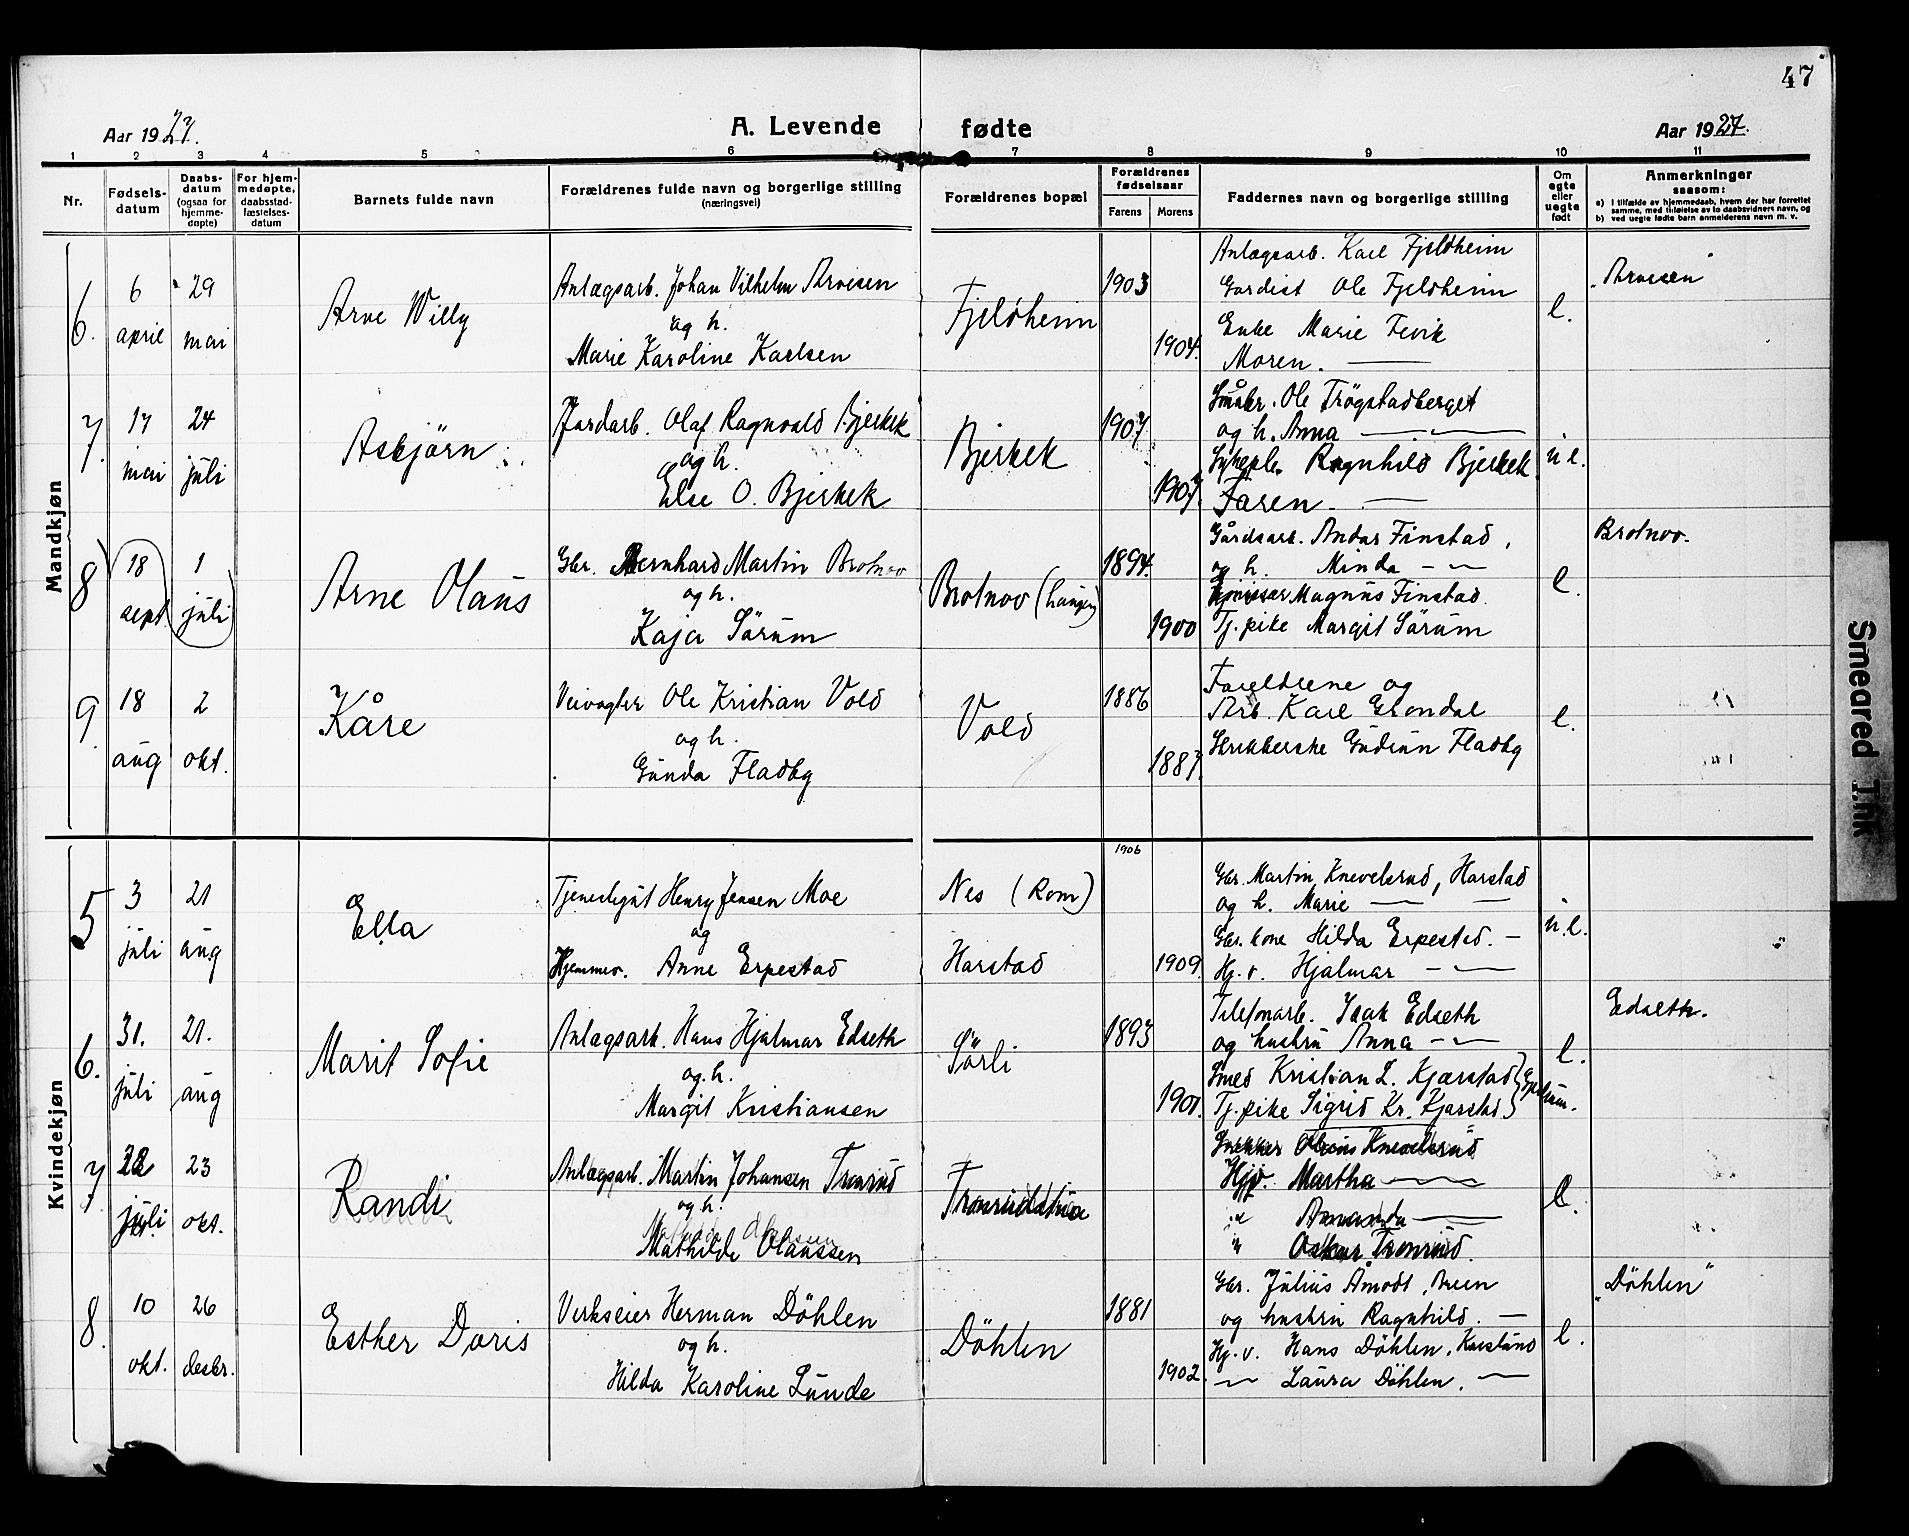 47
Aar 1927.
A. Levende fødte
Aar 1927.
1 2 3 4 5 6 7 8 9 10 11
Nr.
Fødsels-datum
Daabs-datum (ogsaa for hjemme-døpte)
For hjem-medøpte, daabsstad-fæstelses-datum
Barnets fulde navn
Forældrenes fulde navn og borgerlige stilling (næringsvei)
Forældrenes bopæl
Forældrenes fødselsaar
Farens Morens
Faddernes navn og borgerlige stilling
Om egte eller uegte født
Anmerkninger
saasom:
a) i tilfælde av hjemmedaab, hvem der har forrettet samme, med tilføielse av to daabsvidners navn, og
b) ved uegte fødte barn anmelderens navn m. v.
Mandkjøn
6. 6 april 29 mai
Arne Willy
Anlægsarb. Johan Vilhelm Arvesen
og h.
Marie Karoline Karlsen
Fjeldheim
1903
1904.
Anlægsarb. Karl Fjeldheim
Gardist Ole Fjeldheim
Enke Marie Fevik
Moren. —
e.
"Arvesen"
7. 17 mai 24 juli
Asbjørn
Jordarb. Olaf Ragnvald Bjerkek
og h.
Else O. Bjerkek
Bjerkek
1907
1907.
Småbr. Ole Trøgstadberget
og h. Anna — —
Sykepl. Ragnhild Bjerkek
Faren. —
u e.
8 18 sept. 1 juli
Arne Olaus
Gbr. Bernhard Martin Brotnov
og h.
Kaja Sørum
Brotnov (haugen)
1894.
1900
Gårdsarb. Andar Finstad,
og h. Minda — —
Magnus Finstad.
Tj. pike Margit Sørum
e.
Brotnov.
9. 18 aug 2 okt.
Kåre
Veivogter Ole Kristian Vold
og h.
Gunda Fladby
Vold
1886
1887.
Foreldrene og
Arb. Karl Grondal
Strikkerske Gudrun Fladby
e.
Kvindekjøn
5 3 juli 21 aug
Ella
Tjenestegut Henry Jensen Moe
og
Hjemmev. Anne Erpestad
Nes (Rom)
Harstad
1906
1909.
Gbr. Martin Knevelsrud, Harstad
og h. Marie — —
Gbr. kone Hilda Erpestad. —
Hj. v. Hjalmar — —
u.e.
6. 31. juli 21. aug
Marit Sofie
Anlægsarb. Hans Hjalmar Edseth
og. h.
Margit Kristiansen
Sørli
1893
1901.
Telefonarb. Isak Edseth
og hustru Anna — —
Smed Kristian L. Kjærstad
Tj. pike Sigrid Kr. Kjærstad
e.
Edseth.
7. 22 juli 23 okt.
Randi
Anlægsarb. Martin Johansen Tronrud
og h.
Mathilde Olaussen
Snekker Knevelsrud
Hjv. Martha — —
" Amanda —
" Oskar Tronrud.
e.
8. 10 okt. 26 desbr.
Esther Doris
Verkseier Herman Döhlen
og h.
Hilda Karoline Lunde
Döhlen
1881
1902.
Gbr. Julius Åmodt, Breen
og hustru Ragnhild. —
Hj. v. Hans Döhlen,
— Laura Döhlen. —
e.
"Döhlen"
Smeared Ink